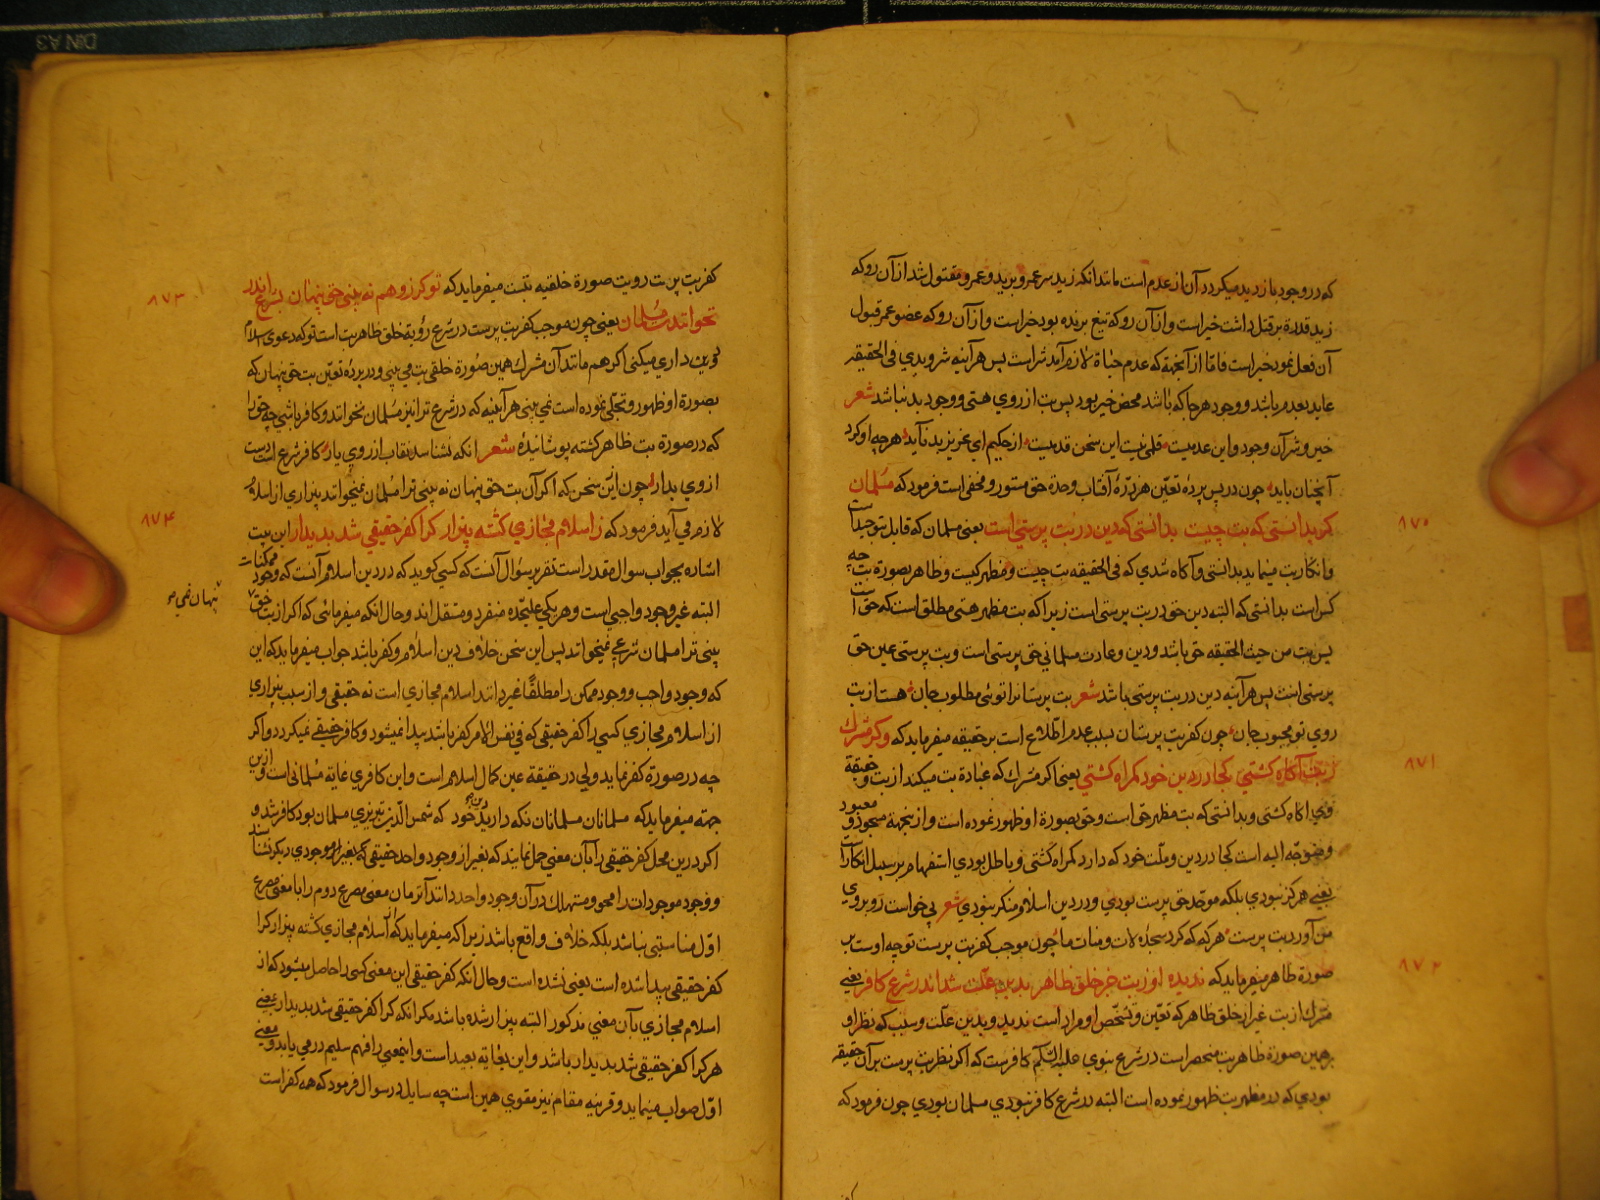 که در وجود بازدید میکردد آن از عدم است مانند انکه زید سر عمرو برید و عمرو مقتول شد از آن رو که
زید قدرة بر قتل داشت خیر است و از آن رو که تیغ برنده بود خیر است و از آن رو که عضو عمر قبول
آن فعل نمود خیر است فامّا از آنجهة که عدم حیاة لازم آمد شر است پس هر آینه شر و بدی فی الحقیقه
عاید بعدم باشد و وجود هر جا که باشد محض خیر بود پس بت از روی هستی و وجود بد نباشد شعر
خیر و شر آن وجود و این عدمیت قلمی نیست این سخن قدمیت از حکیم ای عزیز بد نآید هر چه او کرد
آنچنان باید چون در پس پردۀ تعیّن هر ذرّۀ آفتاب وحدة حق مستور و مخفی است فرمود که مسلمان
۸۷۰
کر بدانستی که بت چیست بدانستی که دین در بت پرستی است یعنی مسلمان که قابل توحید است
و انکار بت مینماید بدانستی و آکاه شدی که فی الحقیقه بت چیست و مظهر کیست و ظاهر بصورة بت چه
کس است بدانستی که البته دین حق در بت پرستی است زیرا که بت مظهر هستی مطلق است که حق است
پس بت من حیث الحقیقه حق باشد و دین و عادت مسلمانی حق پرستی است و بت پرستی عین حق
پرستی است پس هر آینه دین در بت پرستی باشد شعر بت پرستانرا توئی مطلوب جان هست از بت
روی تو محبوب جان چون کفر بت پرستان بسبب عدم اطّلاع است بر حقیقه میفرماید که وکر مشرک
۸۷۱
ز بت آکاه کشتی کجا در دین خود کمراه کشتی یعنی اکر مشرک که عبادة بت میکند از بت و حقیقة
وی اکاه کشتی و بدانستی که بت مظهر حق است و حق بصورة او ظهور نموده است و از ینجهة مسجود و معبود
و متوجّه الیه است کجا در دین و ملّت خود که دارد کمراه کشتی و باطل بودی استفهام بر سبیل انکار است
یعنی هرکز نبودی بلکه موحّد حق پرست بودی و در دین اسلام منکر نبودی شعر بی خواست رو بروی
من آورد بت پرست هر که که کرد سجده لات و منات ما چون موجب کفر بت پرست توجه اوست بر
۸۷۲
صورة ظاهر میفرماید که ندیده او ز بت جز خلق ظاهر بدین علّت شد اندر شرع کافر یعنی
مشرک از بت غیر از خلق ظاهر که تعیّن و تشخّص او مراد است ندید و بدین علّت و سبب که نظر او
بر همین صورة ظاهر بت منحصر است در شرع نبوی علیه السّلام کافر است که اکر نظر بت پرست بر آن حقیقه
بودی که در مظهر بت ظهور نموده است البته در شرع کافر نبودی مسلمان بودی چون فرمود که
کفر بت پرست رویت صورة خلقیه بتست میفرماید که تو کر زو هم نه بینی حق پنهان بشرع اندر
۸۷۳
نخوانندت مسلمان یعنی چون موجب کفر بت پرست در شرع رؤیة خلق ظاهر بت است تو که دعوی اسلام
و دین داری میکنی اکر هم مانند آن مشرک همین صورة خلقی بت می بینی و در پردۀ تعیّن بت حق پنهان که
بصورة او ظهور و تجلّی نموده است نمی بینی هر آیینه که در شرع ترا نیز مسلمان نخوانند و کافر باشی چه حق را
که در صورة بت ظاهر کشته پوشانیدۀ شعر انکه نشناسد نقاب از روی یار کافر شرع است دست
از وی بدار چون این سخن که اکر آن بت حق پنهان نه بینی ترا مسلمان نمیخوانند بیزاری از اسلام
۸۷۴
لازم می آید فرمود که ز اسلام مجازی کشته بیزار کرا کفر حقیقی شد پدیدار این بیت
اشاره بجواب سوال مقدر است تقریر سوال آنست که کسی کوید که در دین اسلام آنست که وجود ممکنات
البته غیر وجود واجبی است و هر یکی علیحّده منفرد و مستقل اند و حال انکه میفرمائی که اکر از بت حق
پنهان نمی
بینی ترا مسلمان شرعی نمیخوانند پس این سخن خلاف دین اسلام و کفر باشد جواب میفرماید که این
که وجود واجب و وجود ممکن را مطلقًا غیر دانند اسلام مجازی است نه حقیقی و از سبب بیزاری
از اسلام مجازی کسی را کفر حقیقی که فی نفس الامر کفر باشد پیدا نمیشود و کافر حقیقی نمیکردد و اکر
چه در صورة کفر نماید ولی در حقیقة عین کمال اسلام است و این کافری غایة مسلمانی است و از این
جهته میفرماید که مسلمانان مسلمانان نکه دارید دین خود که شمس الدّین تبریزی مسلمان بود کافر شد و
اکر درین محل کفر حقیقی را بآن معنی حمل نمایند که بغیر از وجود واحد حقیقی که بغیر او موجودی دیکر نشناسند
و وجود موجودات را محو و مستهلک در آن وجود واحد دانند آنزمان معنی مصرع دوم را با معنی مصرع
اوّل مناسبتی نباشد بلکه خلاف واقع باشد زیرا که میفرماید که از اسلام مجازی کشته بیزار کرا
کفر حقیقی پیدا شده است یعنی نشده است و حال انکه کفر حقیقی این معنی کسی را حاصل میشود که از
اسلام مجازی بآن معنی مذکور البته بیزار شده باشد مکر انکه کرا کفر حقیقی شد پدیدار یعنی
هر کرا کفر حقیقی شد پدیدار باشد و این بغایة بعید است و اینمعنی را فهم سلیم در می یابد و معنی
اوّل صواب مینماید و قرینه مقام نیز مقوی همین است چه سایل در سوال فرمود که همه کفر است